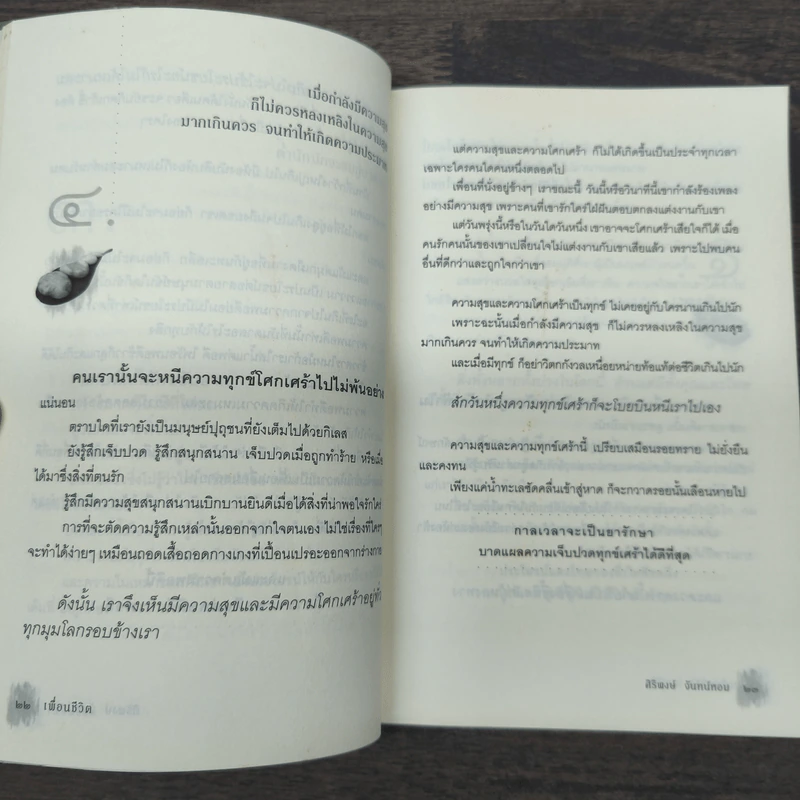 เมื่อกำลังมีความสุข
ก็ไม่ควรหลงเหลิงในความสุข
มากเกินควร จนทำให้เกิดความประมาท
๔.
คนเรานั้นจะหนีความทุกข์โศกเศร้าไปไม่พ้นอย่าง
แน่นอน
ตราบใดที่เรายังเป็นมนุษย์ปุถุชนที่ยังเต็มไปด้วยกิเลส
ยังรู้สึกเจ็บปวด รู้สึกสนุกสนาน เจ็บปวดเมื่อถูกทำร้าย หรือเมื่อ
ได้มาซึ่งสิ่งที่ตนรัก
รู้สึกมีความสุขสนุกสนานเบิกบานยินดีเมื่อได้สิ่งที่น่าพอใจรักใคร่
การที่จะตัดความรู้สึกเหล่านั้นออกจากใจตนเอง ไม่ใช่เรื่องที่ใครๆ
จะทำได้ง่ายๆ เหมือนถอดเสื้อถอดกางเกงที่เปื้อนเปรอะออกจากร่างกาย
ดังนั้น เราจึงเห็นมีความสุขและมีความโศกเศร้าอยู่ทั่ว
ทุกมุมโลกรอบข้างเรา
๒๒ เพื่อนชีวิต
แต่ความสุขและความโศกเศร้า ก็ไม่ได้เกิดขึ้นเป็นประจำทุกเวลา
เฉพาะใครคนใดคนหนึ่งตลอดไป
เพื่อนที่นั่งอยู่ข้างๆ เราขณะนี้ วันนี้หรือวินาทีนี้เขากำลังร้องเพลง
อย่างมีความสุข เพราะคนที่เขารักใคร่ใฝ่ฝันตอบตกลงแต่งงานกับเขา
แต่วันพรุ่งนี้หรือในวันใดวันหนึ่ง เขาอาจจะโศกเศร้าเสียใจก็ได้ เมื่อ
คนรักคนนั้นของเขาเปลี่ยนใจไม่แต่งงานกับเขาเสียแล้ว เพราะไปพบคน
อื่นที่ดีกว่าและถูกใจกว่าเขา
ความสุขและความโศกเศร้าเป็นทุกข์ ไม่เคยอยู่กับใครนานเกินไปนัก
เพราะฉะนั้นเมื่อกำลังมีความสุข ก็ไม่ควรหลงเหลิงในความสุข
มากเกินควร จนทำให้เกิดความประมาท
และเมื่อมีทุกข์ ก็อย่าวิตกกังวลเหนื่อยหน่ายท้อแท้ต่อชีวิตเกินไปนัก
สักวันหนึ่งความทุกข์เศร้าก็จะโบยบินหนีเราไปเอง
ความสุขและความทุกข์เศร้านี้ เปรียบเสมือนรอยทราย ไม่ยั่งยืน
และคงทน
เพียงแค่น้ำทะเลซัดคลื่นเข้าสู่หาด ก็จะกวาดรอยนั้นเลือนหายไป
กาลเวลาจะเป็นยารักษา
บาดแผลความเจ็บปวดทุกข์เศร้าได้ดีที่สุด
ศิริพงษ์ จันทน์หอม ๒๓